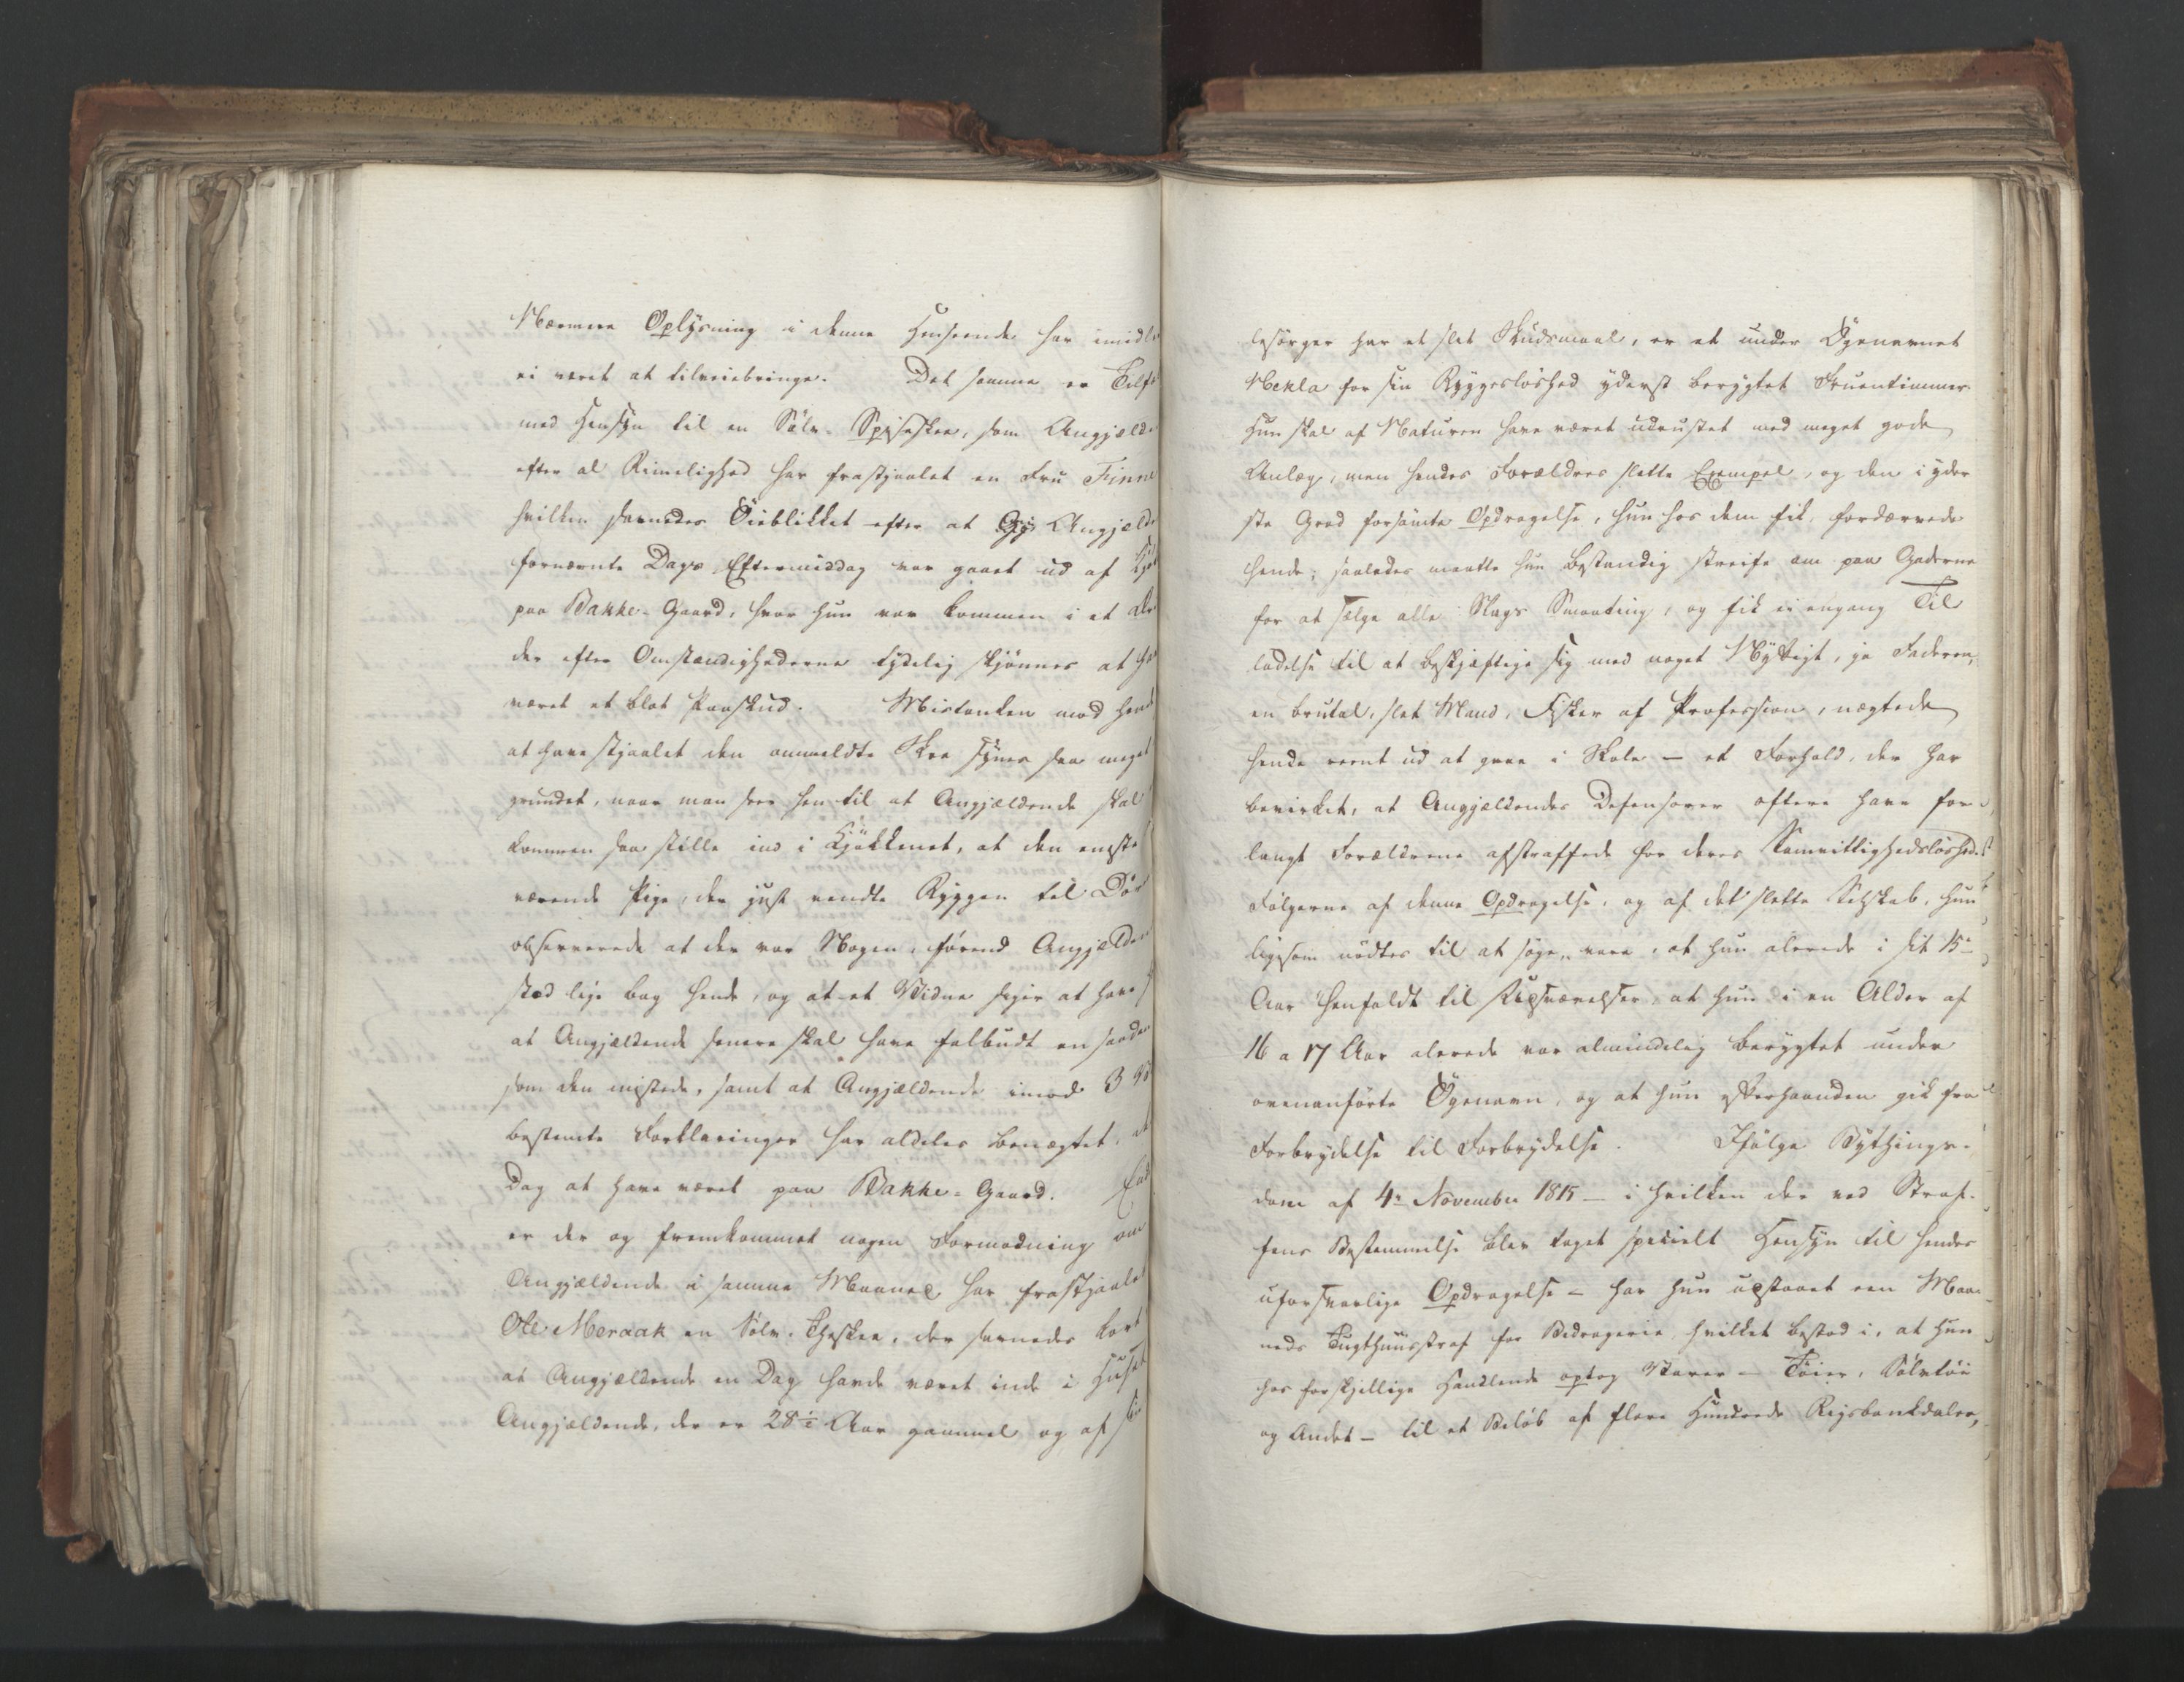 Nærmere Oplysning i denne Henseende har imidl
ei været at tilveiebringe. Det samme er Tilf
med Hensyn til en Sølv-Spiseskee, som Angjæld
efter al Rimelighed har frastjaalet en Fru Finne
hvilken savnedes Öieblikket efter at Angjæld
fornævnte Dags Eftermiddag var gaaet ud af Kjök
paa Bakke-Gaard, hvor hun var kommen i et
der efter Omstændighederne tydelig skjönnes at ha
været et blot Paaskud. Mistanken mod hend
at have stjaalet den ommeldte Skee synes saa meget
grundet, naar man seer hen til at Angjældende skal
kommen saa stille ind i Kjøkkenet, at den eneste
værende Pige, der just vendte Ryggen til Dör
observerede at der var Nogen, førend Angjælden
stod lige bag hende, og at et Vidne siger at have
at Angjældende senere skal have falbudt en saadan
som den mistede, samt at Angjældende imod 3
bestemte Forklaringer har aldeles benægtet, at
Dag at have været paa Bakke-Gaard. End
er der og fremkommet nogen Formodning om
Angjældende i samme Maaned har frastjaalet
Ole Meraak en Sölv-Theskee, der savnedes kort
at Angjældende en Dag havde været inde i Huset
Angjældende, der er 28½ Aar gammel og af sin
lesörger har et slet Skudsmaal, er et under Øgenavnet
Mekla for sin Ryggesløshed yderst berygtet Fruentimmer.
Hun skal af Naturen have været udrustet med meget gode
Anlæg, men hendes Forældres slette Exempel, og den i yder
ste Grad forsömte Opdragelse, hun hos dem fik, fordærvede
hende; saaledes maatte hun bestandig streife om paa Gaderne
for at sælge alle Slags Smaating, og fik ei engang Til
ladelse til at beskjæftige sig med noget Nyttigt, ja Faderen,
en brutal, slet Mand, Fisker af Profession, nægtede
hende reent ud at gaae i Skole — et Forhold, der har
bevirket, at Angjældendes Defensorer oftere have for
langt Forældrene afstraffede for deres Samvittighedslöshed.
Følgerne af denne Opdragelse, og af det slette Selskab, hun
ligesom nödtes til at søge, vare, at hun alerede i sit 15de
Aar henfaldt til Udsvævelser, at hun i en Alder af
16 a 17 Aar alerede var almindelig berygtet under
ovenanförte Øgenavn, og at hun efterhaanden gik fra
Forbrydelse til Forbrydelse. Ifølge Bythings-
dom af 4de November 1815 — i hvilken der ved Straf-
fens Bestemmelse blev taget specielt Hensyn til hendes
uforsvarlige Opdragelse — har hun udstaaet een Maa-
neds Tugthuusstraf for Bedragerie, hvilket bestod i, at hun
hos forskjellige Handlende optog Varer — Töier, Sölvtöi
og Andet — til et Belöb af flere Hundrede Rigsbankdaler,